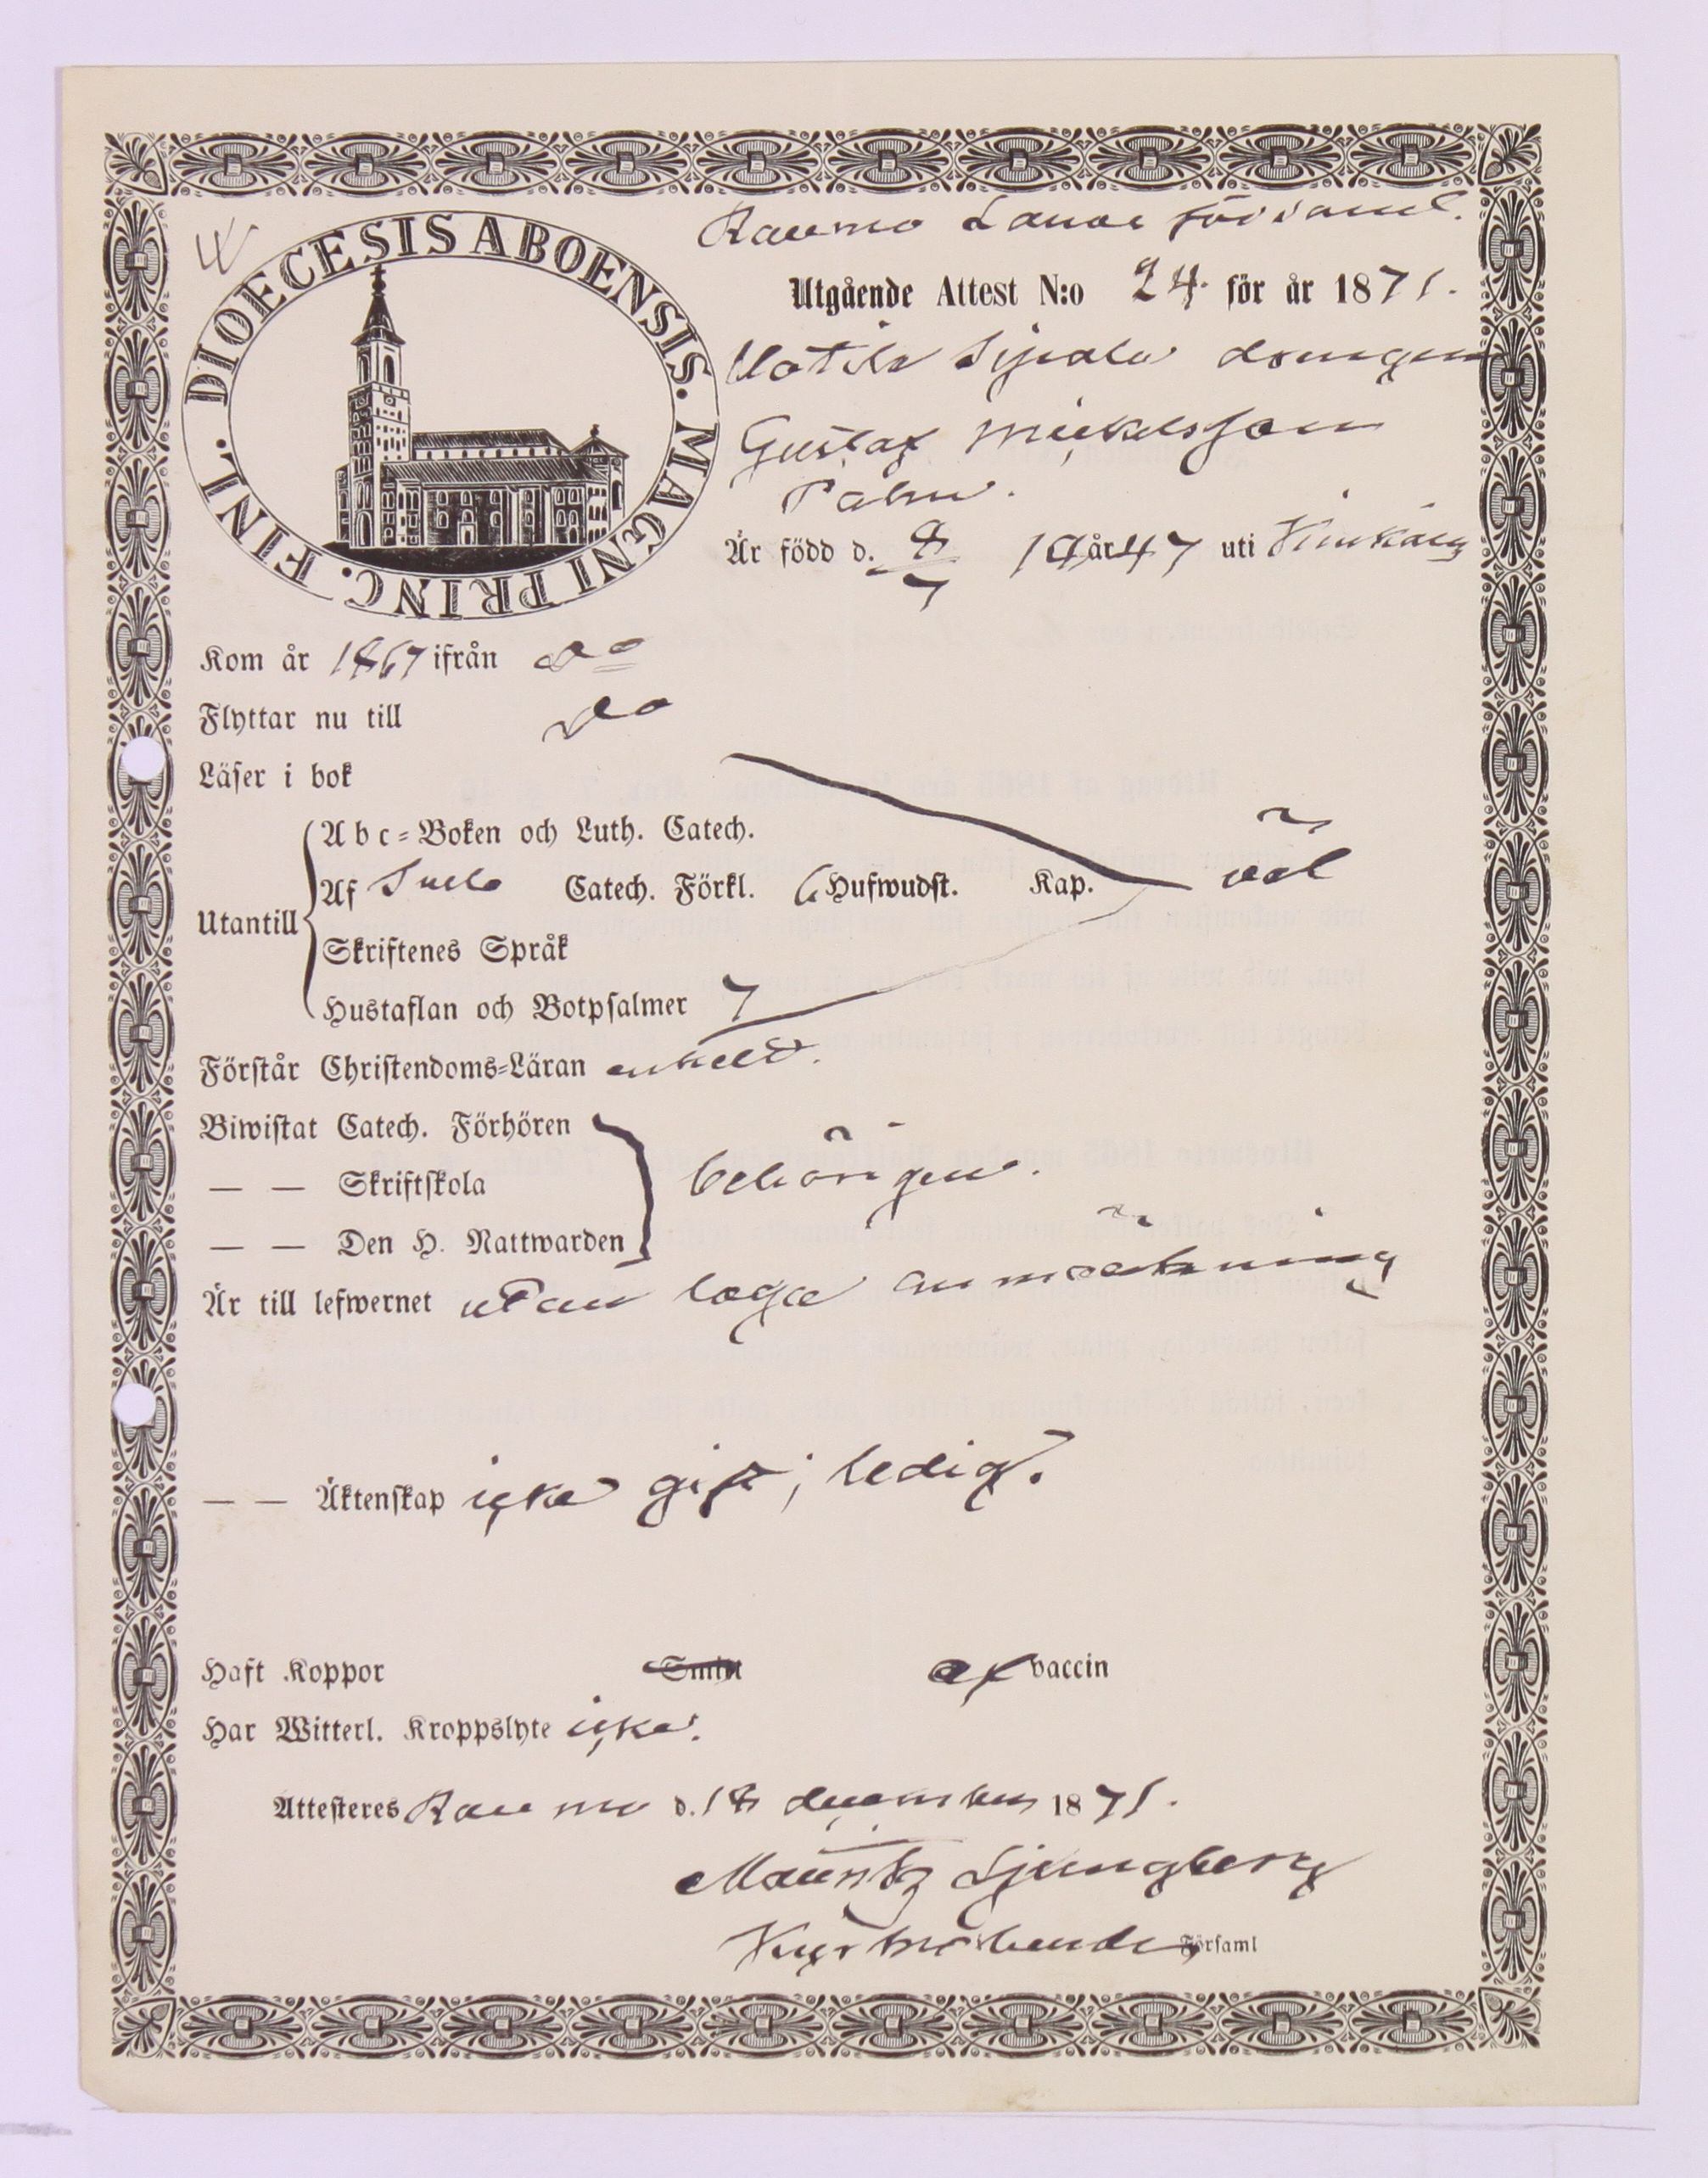 DIOECESIS ABOENSIS. MAGNI PRINC. FINL.
Raumo Lands församl.
Utgående Attest N:o 24. för år 1871.
drengen
Gustaf Mickelsson
Palm.
Är född d. 8/7 18 år 47 uti
Kom år 1867 ifrån do
Flyttar nu till do
Läser i bok
Abc-Boken och Luth. Catech.
Utantill
Af Catech. Förkl. 6 Hufwudst. Kap. väl
Skriftenes Språk
Hustaflan och Botpsalmer 7
Förstår Christendoms-Läran enkelt.
Biwistat Catech. Förhören
— — Skriftskola behörigen.
— — Den H. Nattwarden
Är till lefwernet utan laga anmärkning
— — Äktenskap icke gift; ledig.
Haft Koppor Smitt af vaccin
Har Witterl. Kroppslyte icke.
Attesteres Raumo d. 18 december 1871.
Mauritz Ljungberg
Församl